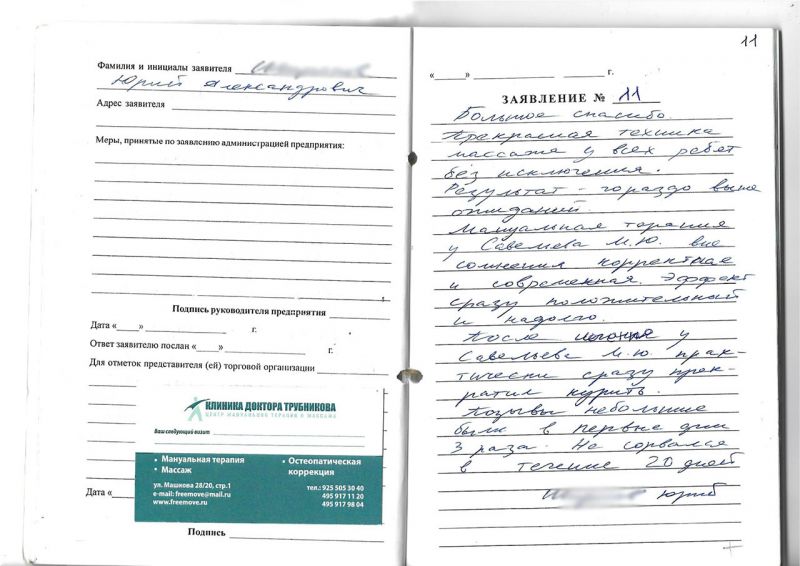 Фамилия и инициалы заявителя
Юрий Александрович
Адрес заявителя
Меры, принятые по заявлению администрацией предприятия:
Подпись руководителя предприятия
Дата «    »    г.
Ответ заявителю послан «    »    г.
Для отметок представителя (ей) торговой организации
КЛИНИКА ДОКТОРА ТРУБНИКОВА
ЦЕНТР МАНУАЛЬНОЙ ТЕРАПИИ И МАССАЖА
Ваш следующий визит
• Мануальная терапия
• Массаж
• Остеопатическая
коррекция
ул. Машкова 28/20, стр.1
e-mail: freemove@mail.ru
www.freemove.ru
тел.: 925 505 30 40
495 917 11 20
495 917 98 04
Дата «
Подпись
11
«    »    г.
ЗАЯВЛЕНИЕ № 11
Большое спасибо.
Прекрасная техника
массажа у всех ребят
без исключения.
Результат - гораздо выше
ожиданий.
Мануальная терапия
у Савельева М.Ю. вне
сомнения корректная
и современная. Эффект
сразу положительный
и надолго.
После у
Савельева М.Ю. прак-
тически сразу прек-
ратил курить.
Позывы небольшие
были в первые дни
3 раза. Не сорвался
в течение 20 дней
Юрий